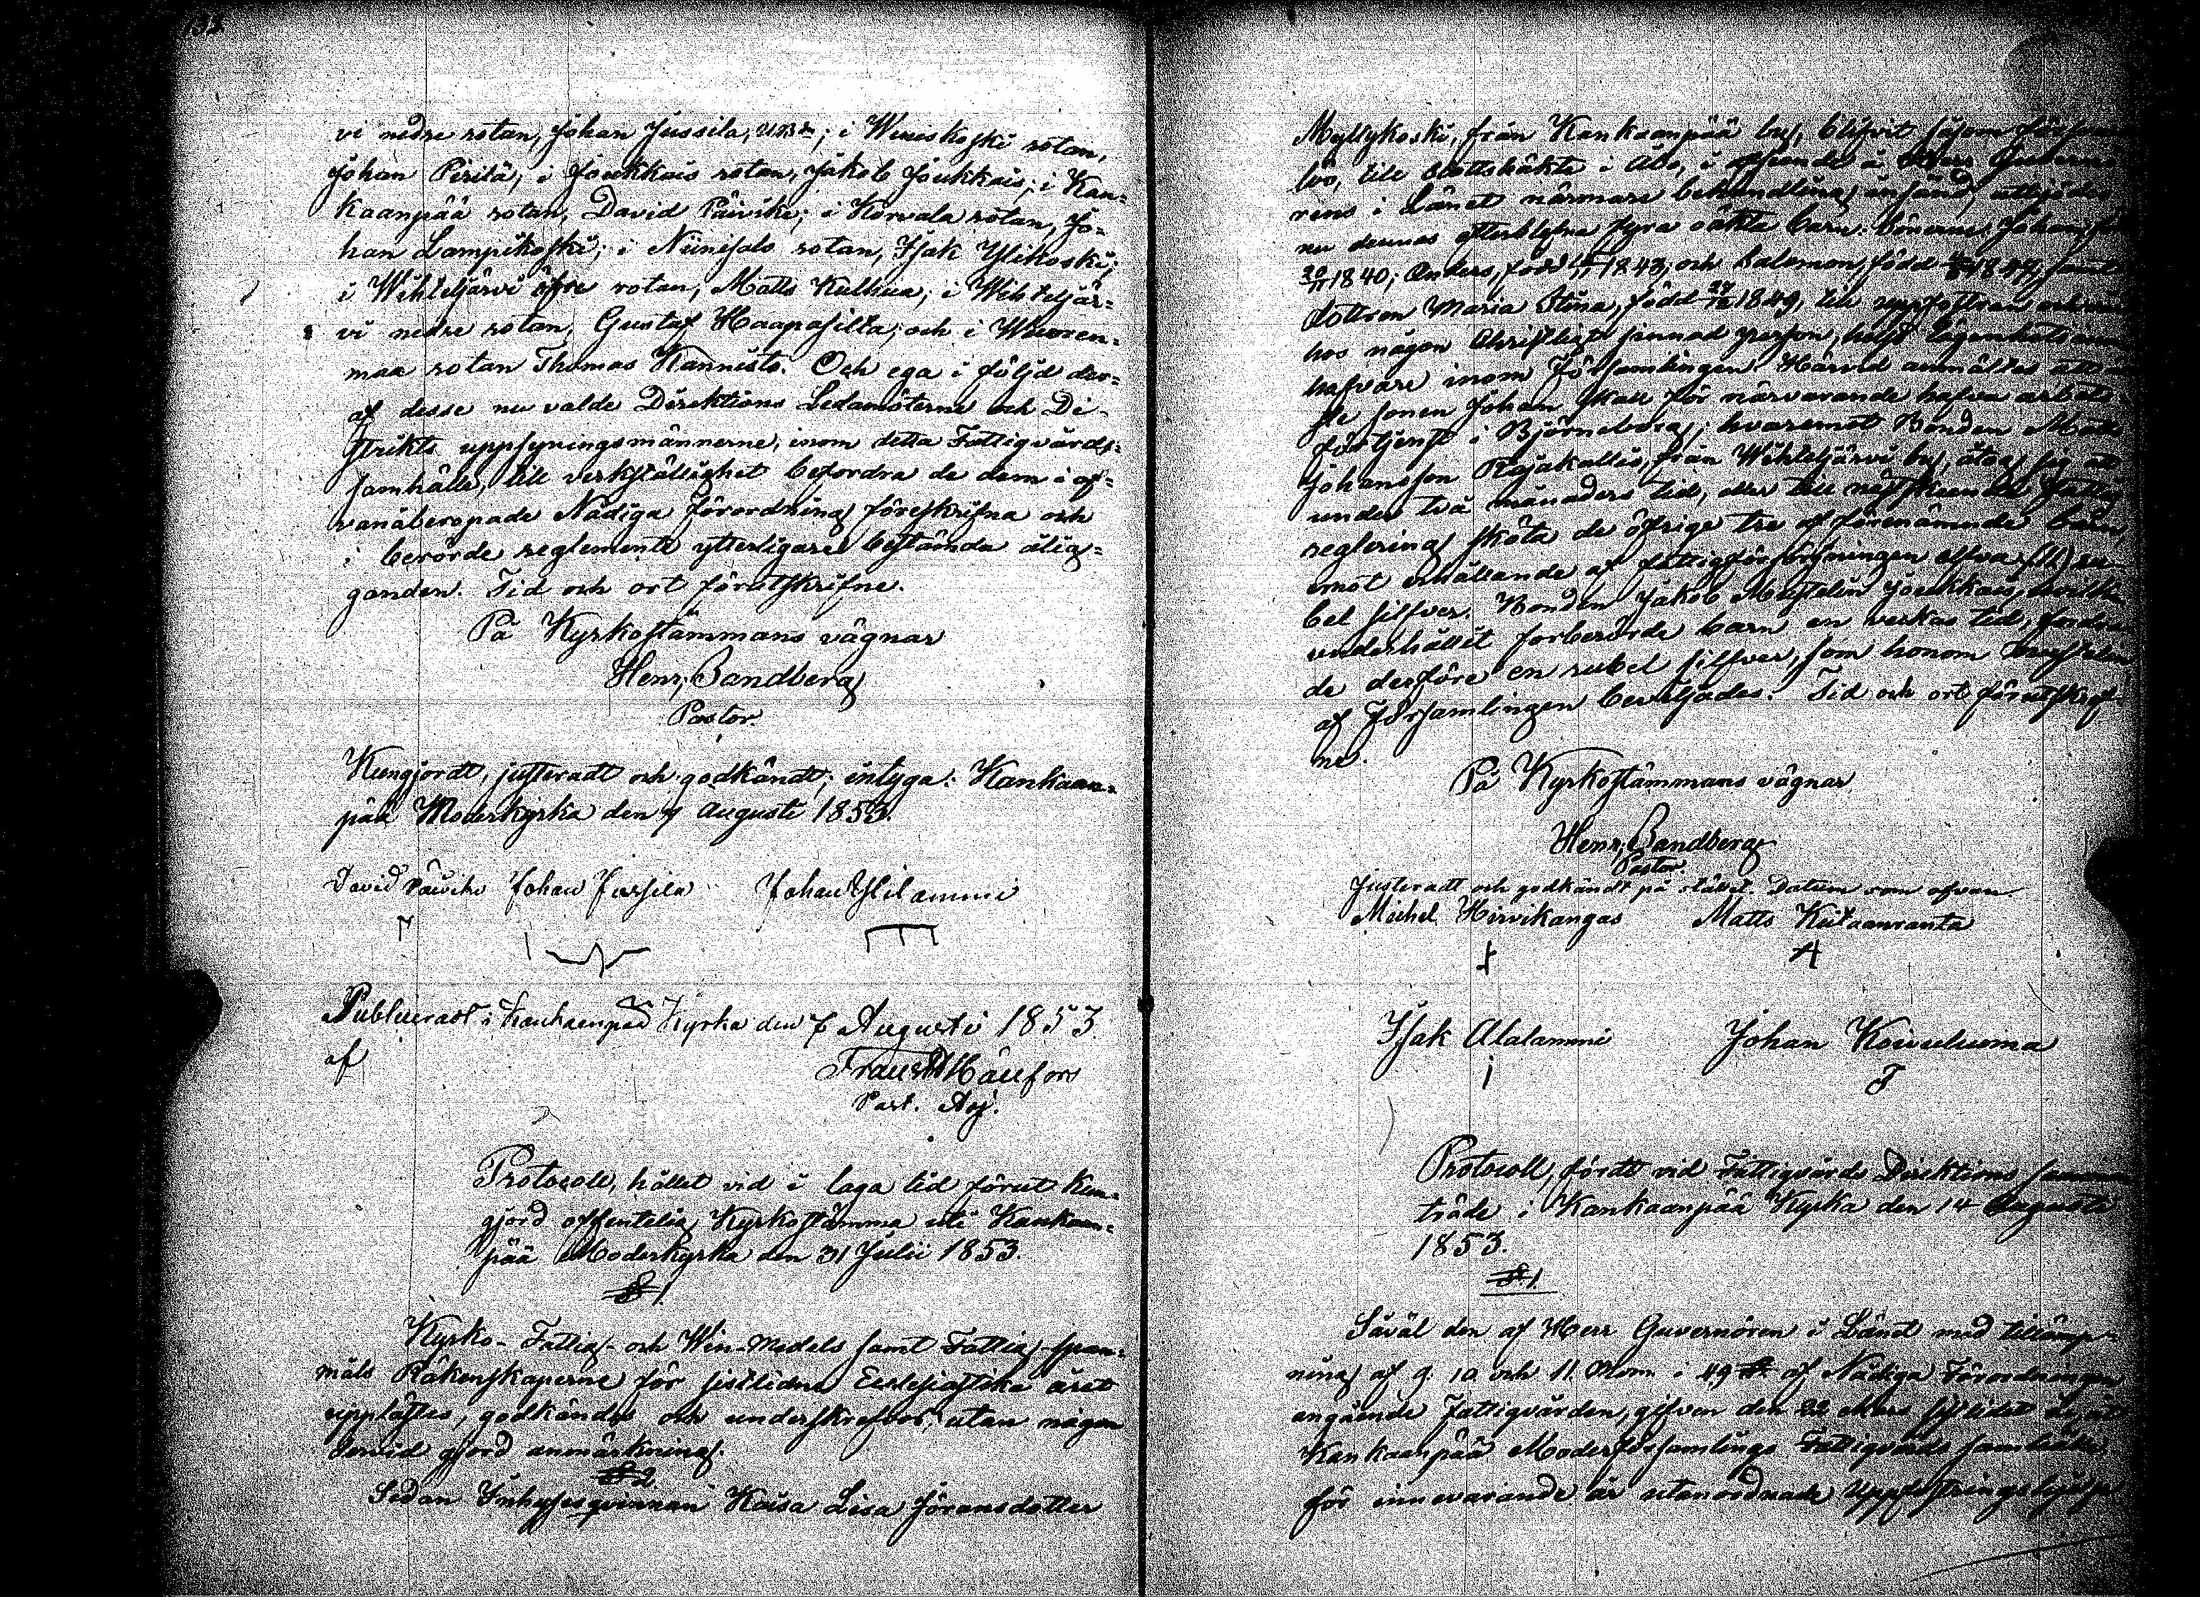 133.
vi nedre rotan, Johan Jussila, ; i Wuniskoski rotan,
Johan Pirilä; i Joukkais rotan, Jakob Joukkais; i Kan-
kaanpää rotan, David Päivike; i Korvala rotan, Jo-
han Lampikoski; i Niinisalo rotan, Isak Ylikoski;
i Wihteljärvi öfre rotan, Matts Kulhua; i Wihteljär-
vi nedre rotan, Gustaf Haapasilta; och i Wuoren-
maa rotan Thomas Hannisto. Och ega i följd der-
af desse nu valde Direktions Ledamöterne och Di-
strikts uppsyningsmännerne, inom detta Fattigvårds-
samhälle, till verkställighet befordra de dem i of-
vanåberopade Nådiga förordning föreskrifna och
i berörde reglemente ytterligare bestämda ålig-
ganden. Tid och ort förutskrifne.
På Kyrkostämmans vägnar
Henr. Sandberg
Pastor.
Kungjordt, justeradt och godkändt; intyga: Kankaan-
pää Moderkyrka den 7 Augusti 1853.
David Päivike Johan Jussila Johan Ylilammi
Publiceradt i Kankaanpää Kyrka den 7 Augusti 1853.
af
Frans Hällfors
Past. Adj.
Protocoll, hållet vid i laga tid förut kun-
gjord offentelig Kyrkostämma uti Kankaan-
pää Moderkyrka den 31 Julii 1853.
§ 1.
Kyrko- Fattig- och Win-medels samt Fattig-span-
måls Räkenskaperne för sistlidna Ecclesiastika året
upplästes, godkändes och underskrefvos, utan någon
dervid gjord anmärkning.
§ 2.
Sedan Inhyses qvinnan Kaisa Lisa Göransdotter
Myllykoski, från Kankaanpää by, blifvit såsom
till Slottshäkte i Åbo, i afseende å Herr
rens i Länet närmare behandling insänd,
nu dennas efterblefna fyra oäkta barn: Sönerne, Johan
1840; Anders, född 1843; och Salomon, född 1847, samt
dottren Maria Stina, född 1849, till uppfostran
hos någon Christligt sinnad person, helst
hafvare inom Församlingen. Härvid anmältes att
ste sonen Johan skall för närvarande hafva arbets-
förtjenst i Björneborg; hvaremot Bonden Matts
Johansson Rajakallio, från Wihteljärvi by, åtog sig att
under två månaders tid, eller till nästskeende Fattig-
reglering sköta de öfrige tre af förenämnde barn
emot erhållande af fattigförsörjningen elfva (11) ru-
bel silfver. Bonden Jakob Joukkais,
underhållit förberörde barn en veckas tid, fordra-
de derföre en rubel silfver, som honom
af Församlingen beviljades. Tid och ort förutskrif-
ne.
På Kyrkostämmans vägnar
Henr. Sandberg
Pastor.
Justeradt och godkändt på stället. Datum som ofvan.
Michel Hirvikangas Matts Kiitaanranta
Isak Alalammi Johan Koivuluoma
Protocoll, fördt vid Fattigvårds Direktions samman-
träde i Kankaanpää Kyrka den 14 Augusti
1853.
§ 1.
Såväl den af Herr Guvernören i Länet med tillämp-
ning af 9. 10 och 11. Mom. i 49 § af Nådiga Förordningen
angående fattigvården, gifven den 22 Mars sistlidet år, åt
Kankaanpää Moderförsamlings Fattigvårds samhälle,
för innevarande år utanordnade Uppfostringshjelp